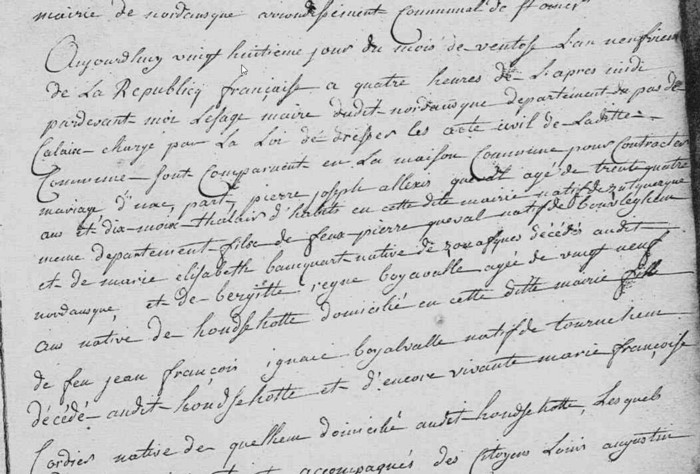 mairie de nordausque arrondissement Communnal de st omer
Aujourdhuy vingt huitieme jour du mois de ventose l'an neufvieme
de La Republicq française a quatre heures de L'apres midi
pardevant moi Lesage maire dudit nordausque departement du pas de
Calais chargé par La Loi de dresser les acte civil de Laditte
Commune sont Comparuent en La maison Commune pour Contracter
mariage d'une part pierre joseph allexis queval agé de trente quatre
ans et dix mois d'habits en cette dite mairie natif de zutquerque
meme departement fils de feux pierre queval natif de
et de marie elisabeth bancquart native de zouafques décédés audit
nordausque, et de bergitte regne boyavalle agée de vingt neuf
ans native de hondschotte domicilié en cette ditte mairie fille
de feu jean françois ignace boyalvalle natif de tournehem
décédé audit hondschotte et d'encore vivante marie françoise
Cordier native de quelhem domicilié audit hondschotte, Lesquels
accompagnés des Citoyens Louis augustin